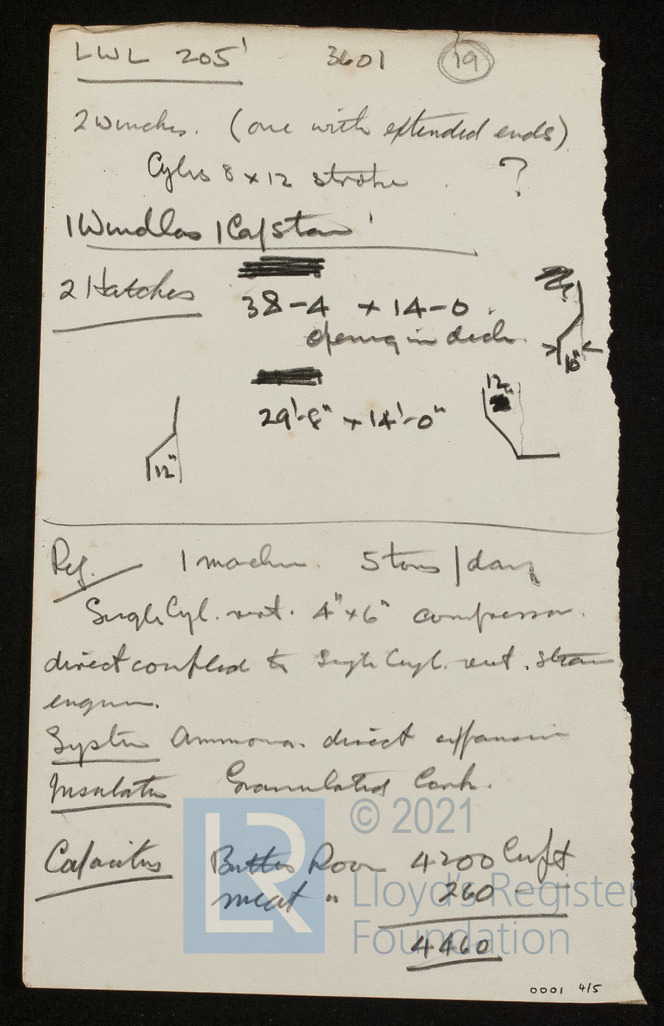 LWL 205' 3601 19
2 Winches. (one with extended ends)
Cyls 8 x 12 stroke . ?
1 Windlass 1 Capstan
2 Hatches 38-4 x 14-0
opening in deck. 10"
12"
29'-8" x 14'-0"
12"
Ref. 1 machine. 5 tons / day
Single Cyl. vert. 4" x 6" compressor.
direct coupled to Single Cyl. vert. steam
engine.
System Ammonia. direct expansion
Insulation Granulated Cork.
© 2021
Capacities Butter Room 4200 Cuft
meat " 260 -
LR Lloyd's Register
Foundation
4460
0001 4/5